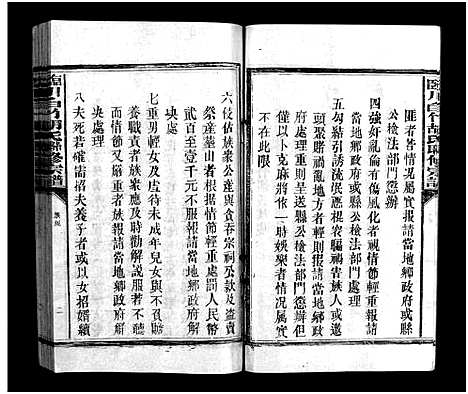 臨川白竹胡氏聯修宗譜
匪者皆情况屬實報請當地鄉政府或縣
公檢法部門懲辦
四強奸亂倫有傷風化者視情節輕重報請
當地鄉政府或縣公檢法部門處理
五勾結引誘流氓惡棍哀騙禍害族人或邀
頭聚賭禍亂地方者輕則報請當地鄉政
府處理重則呈送縣公檢法部門懲辦但
僅以卜克麻將依一時娛樂者情况屬實
不在此限
六侵佔衆公產與貪吞宗祠公款及盜賣
祭產墓山者根據情節輕重處罰人民幣
一百元至壹千元不服報請當地鄉政府解
央處
七重男輕女及虐待未成年兒女與不召贍
養職責者族衆應及時勸解說服若不改
悔情節又嚴重者族報請當地鄉政府解
央處理
八夫死若確需招夫養子者或以女招婿續
臨川白竹胡氏聯修宗譜
二